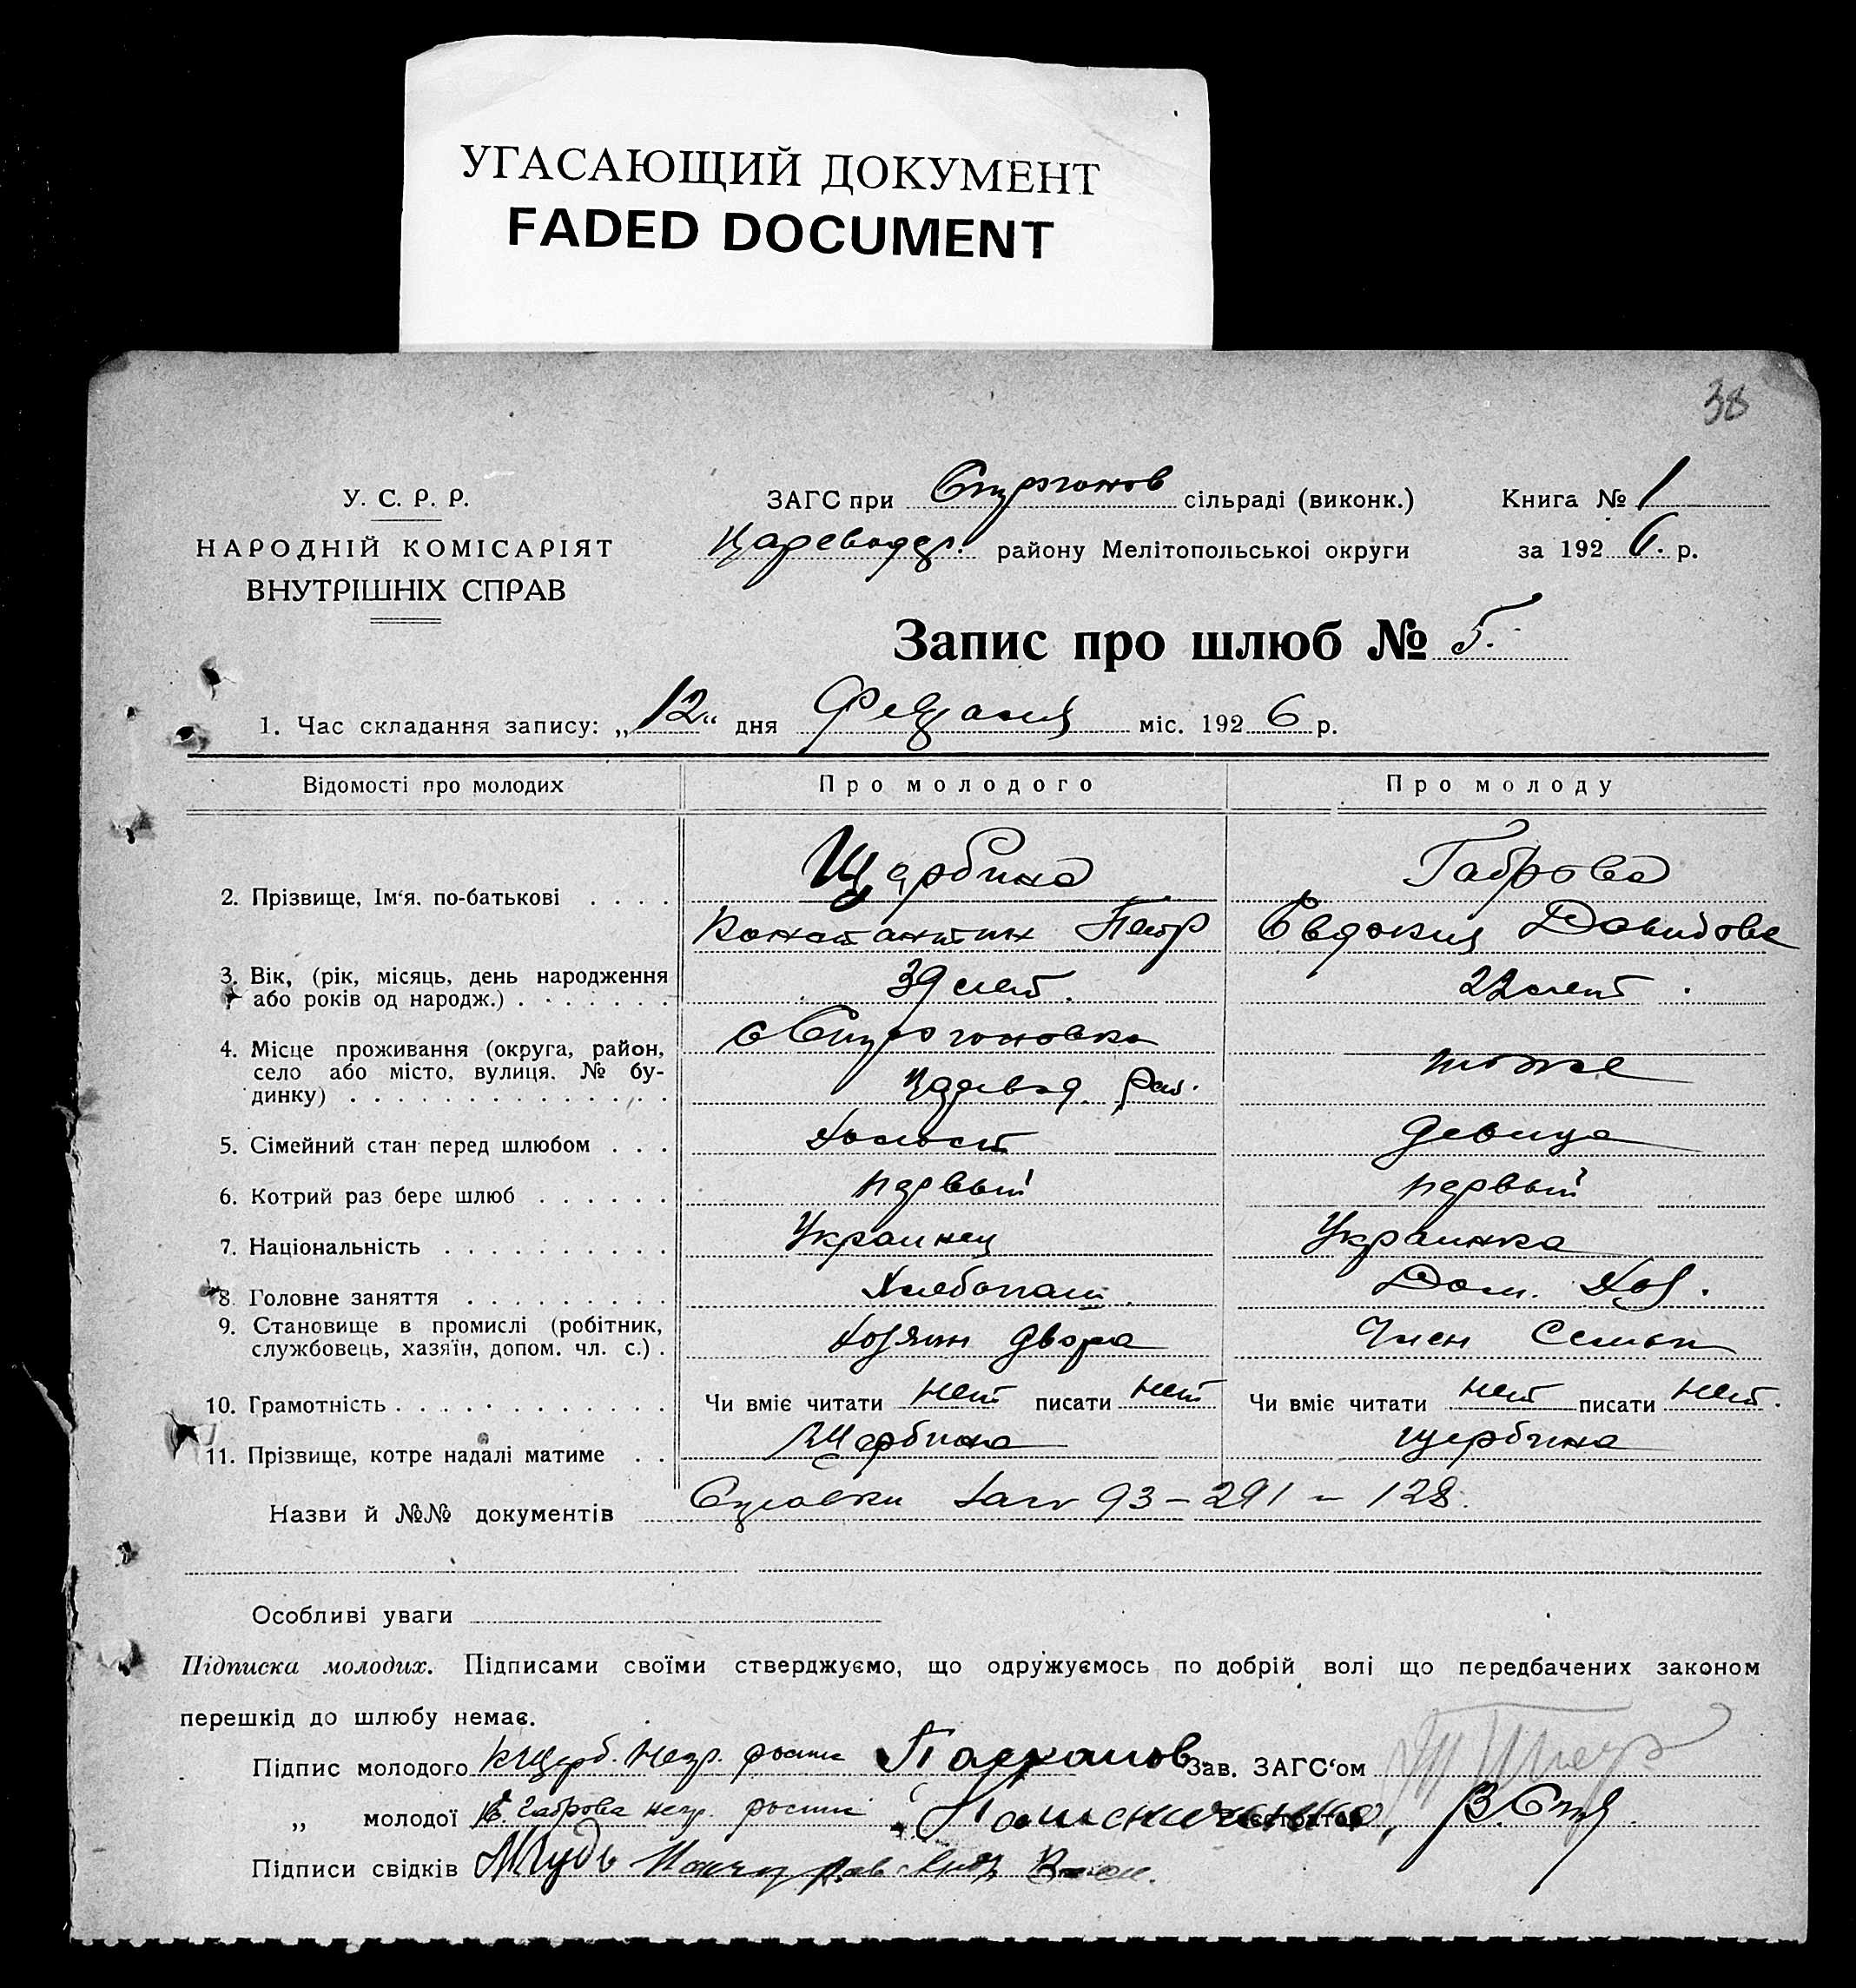 УГАСАЮЩИЙ ДОКУМЕНТ
FADED DOCUMENT
38
У. С. Р. Р.
НАРОДНІЙ КОМІСАРІЯТ
ВНУТРІШНІХ СПРАВ
ЗАГС при сільраді (виконк.)
Книга № 1
району Мелітопольськоі округи
за 192 6. р.
Запис про шлюб № 5.
1. Час складання запису: „12" дня Февраля міс. 192 6 р.
Відомості про молодих Про молодого Про молоду
2. Прізвище, Ім‘я, по-батькові . . . . Щербина Габрова
Константин Петр Евдокия Давидова
3. Вік, (рік, місяць, день народження
або років од народж.) . . . . . . . 39 лет. 22 лет.
4. Місце проживання (округа, район,
село або місто, вулиця, № бу-
динку) . . . . . . . . . . . . . . Царевод. рай. тоже
5. Сімейний стан перед шлюбом . . . Холост девица
6. Котрий раз бере шлюб . . . . . . первый первый
7. Національність . . . . . . . . . . Украинец Украинка
8. Головне заняття . . . . . . . . . Хлебопаш. Дом. Хоз.
9. Становище в промислі (робітник,
службовець, хазяїн, допом. чл. с.) . Хозяин двора Член Семьи
10. Грамотність . . . . . . . . . . . . Чи вміє читати нет писати нет Чи вміє читати нет писати нет.
11. Прізвище, котре надалі матиме . . Щербина Щербина
Назви й №№ документів 93 – 291 – 128.
Особливі уваги
Підписка молодих. Підписами своїми стверджуємо, що одружуємось по добрій волі що передбачених законом
перешкід до шлюбу немає.
Підпис молодого К Щерб. Негр. роспи Зав. ЗАГС‘ом
„ молодої Е. Габрова негр. роспи
Підписи свідків